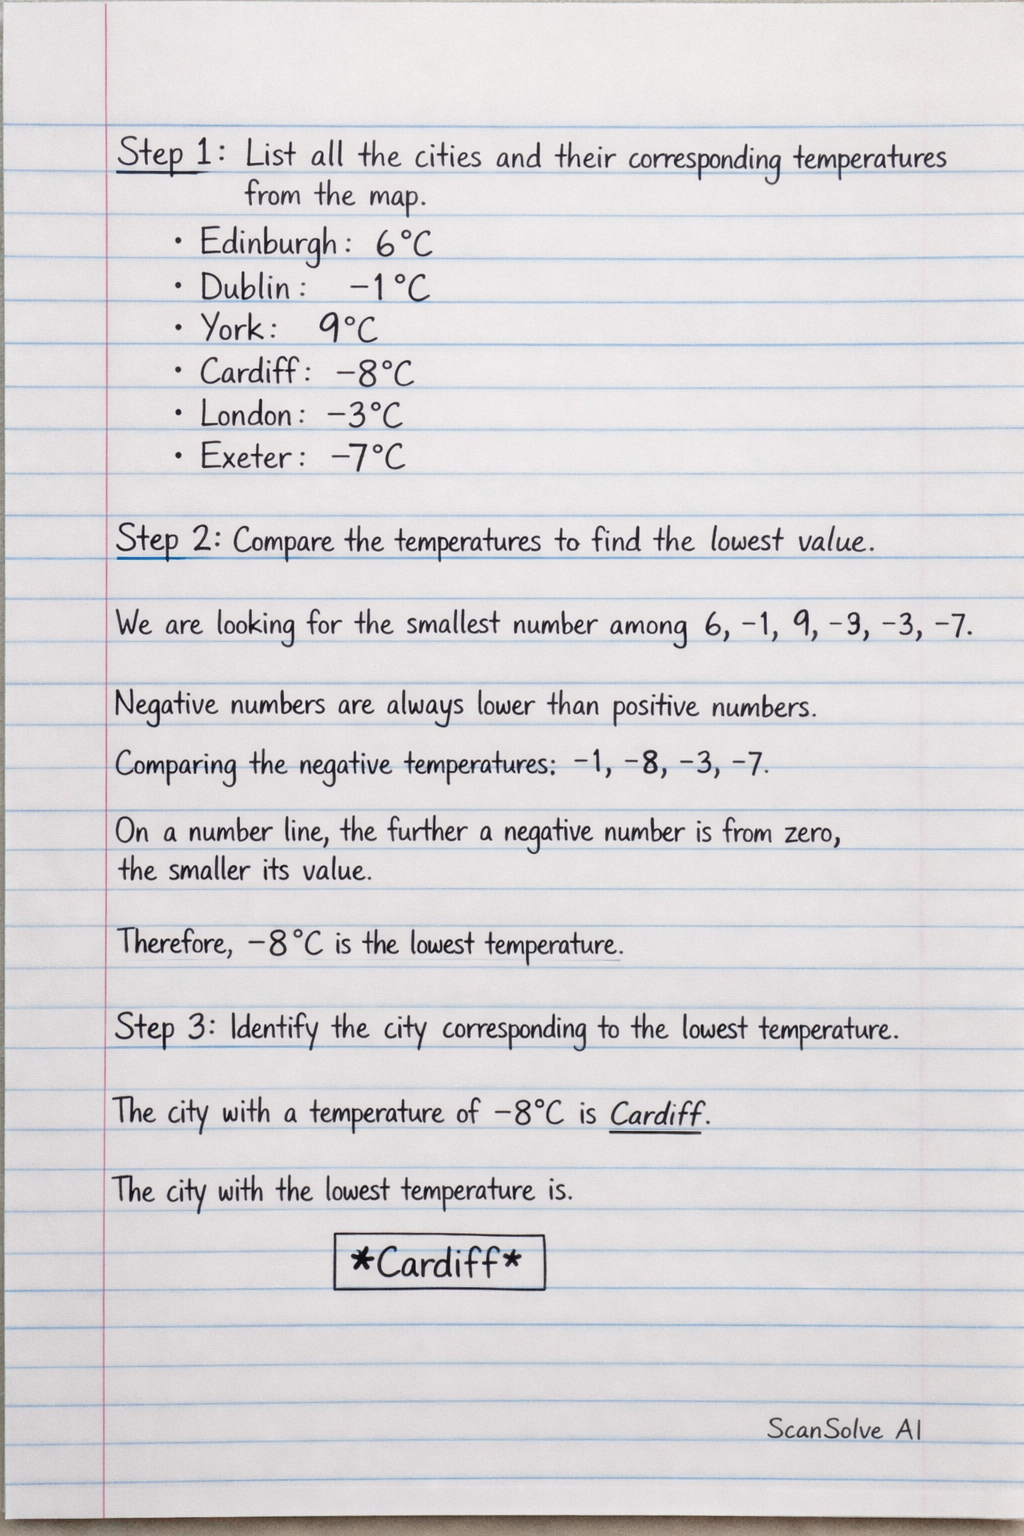 Step 1: List all the cities and their corresponding temperatures
from the map.
• Edinburgh: 6°C
• Dublin: −1°C
• York: 9°C
• Cardiff: −8°C
• London: −3°C
• Exeter: −7°C
Step 2: Compare the temperatures to find the lowest value.
We are looking for the smallest number among 6, −1, 9, −3, −3, −7.
Negative numbers are always lower than positive numbers.
Comparing the negative temperatures: −1, −8, −3, −7.
On a number line, the further a negative number is from zero,
the smaller its value.
Therefore, −8°C is the lowest temperature.
Step 3: Identify the city corresponding to the lowest temperature.
The city with a temperature of −8°C is Cardiff.
The city with the lowest temperature is.
*Cardiff*
ScanSolve AI